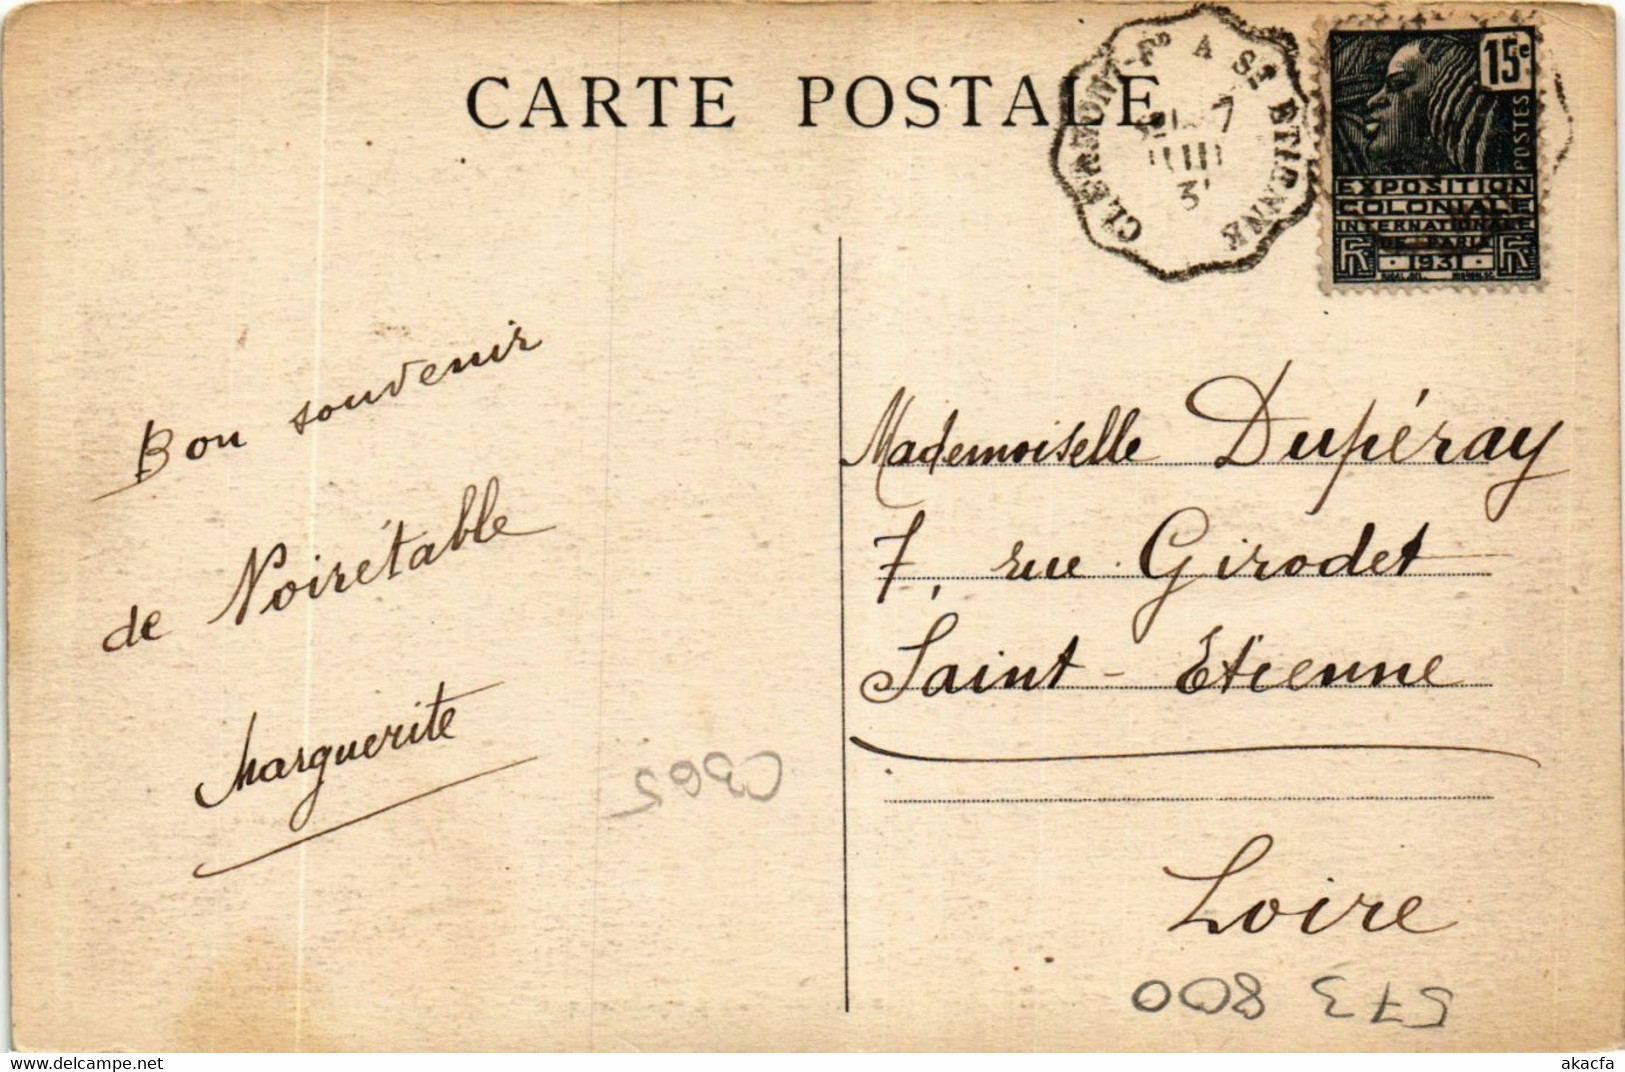 CARTE POSTALE
CLERMONT-FD A ST ETIENNE
7
31
15c
POSTES
EXPOSITION
COLONIALE
INTERNATIONALE
DE PARIS
RF 1931 RF
Bon souvenir
de Noirétable
Marguerite
Mademoiselle Dupéray
7, rue Girodet
Saint-Etienne
Loire
573 800
delcampe.net
akacfa